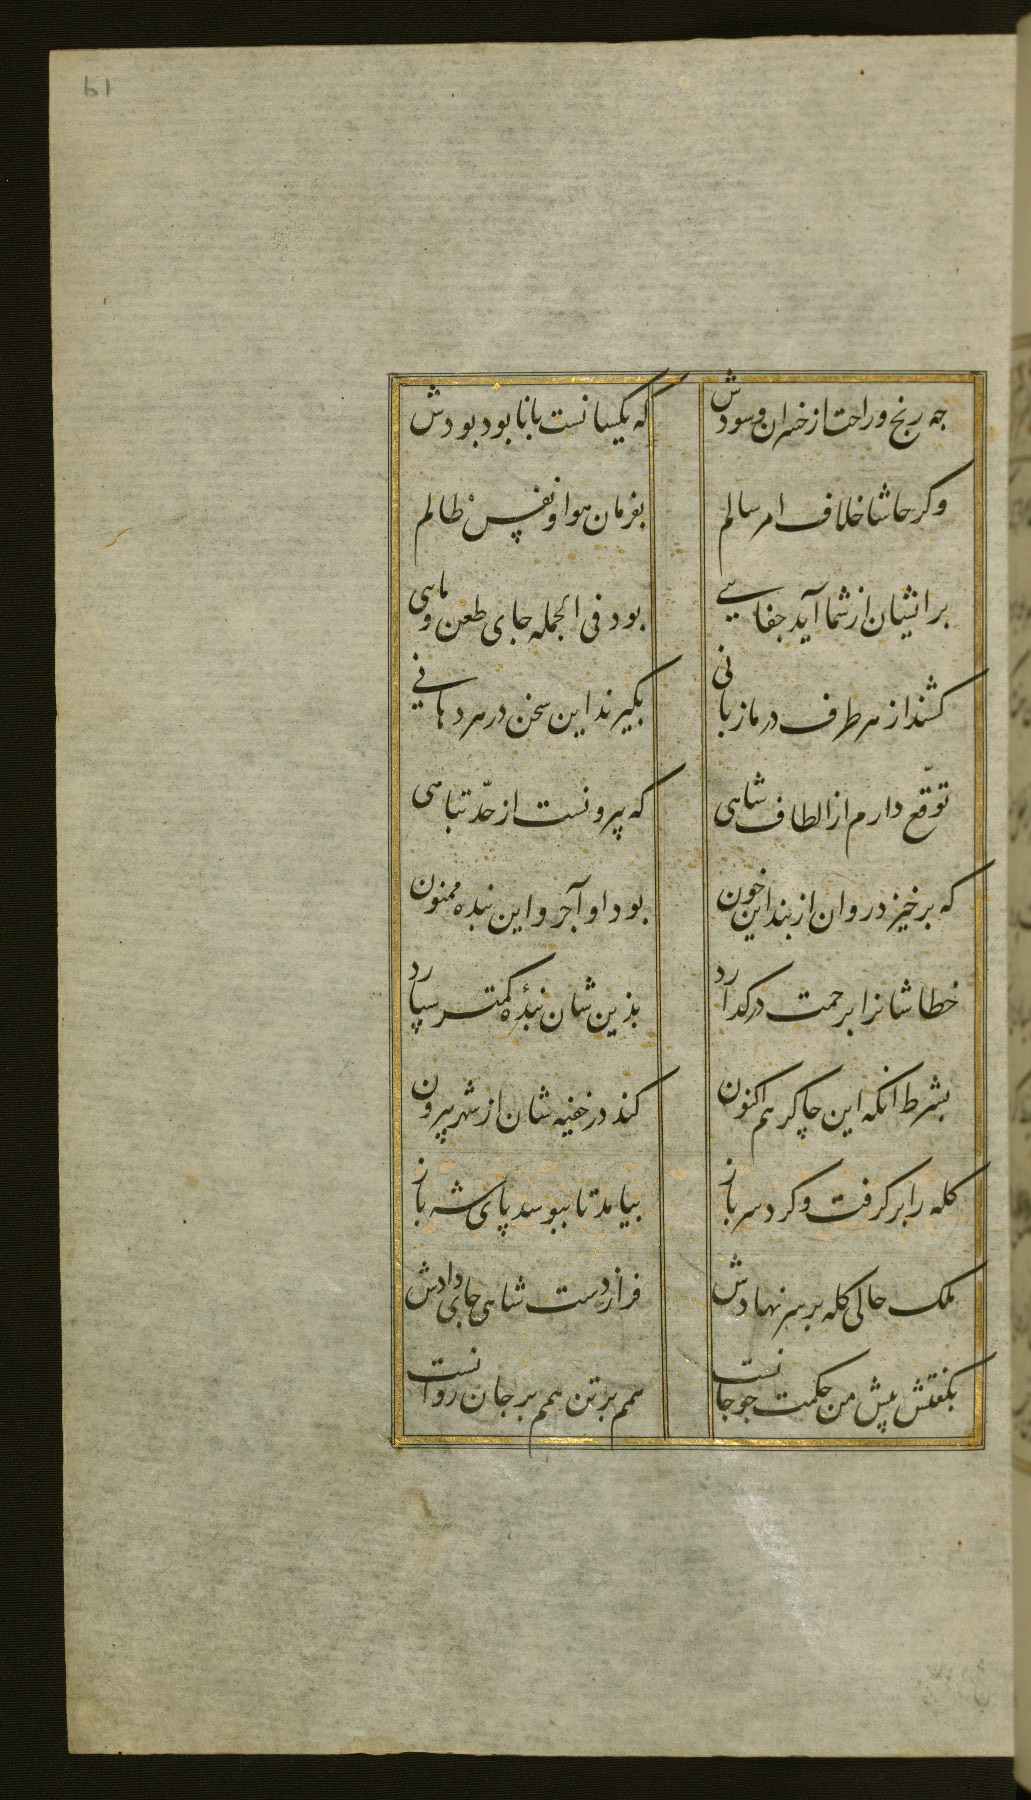 چه رنج و راحت از خسران و سودش
که یکسانست با نابود بودش
وکر حاشا خلاف امر سالم
بفرمان هوا و نفس ظالم
برانیشان از شما آید جفایی
بود فی الجمله جای طعن و ماهی
کشند از هر طرف در ما زبانی
بگیرند این سخن در هر دهانی
توقّع دارم از الطاف شاهی
که بیرونست از حدّ تباهی
که برخیزد روان از بند این خون
بود او آجر و این بنده ممنون
خطاشانرا برحمت درکذارد
بذین شان بندهٔ کمتر سپارد
بشرط آنکه این چاکر هم اکنون
کند در خفیه شان از شهر بیرون
کله را برکرفت و کرد سر باز
بیامد تا ببوسد پای شه باز
ملک حالی کله بر سر نهادش
فراز دست شاهی جای دادش
بکفتش پیش من حکمت چو جانست
همم بر تن همم بر جان روانست